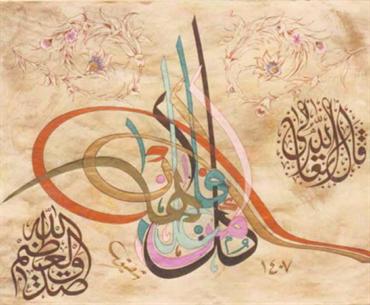 قال الله تعالى
كل من عليها فان
صدق الله العظيم
١٤٠٧